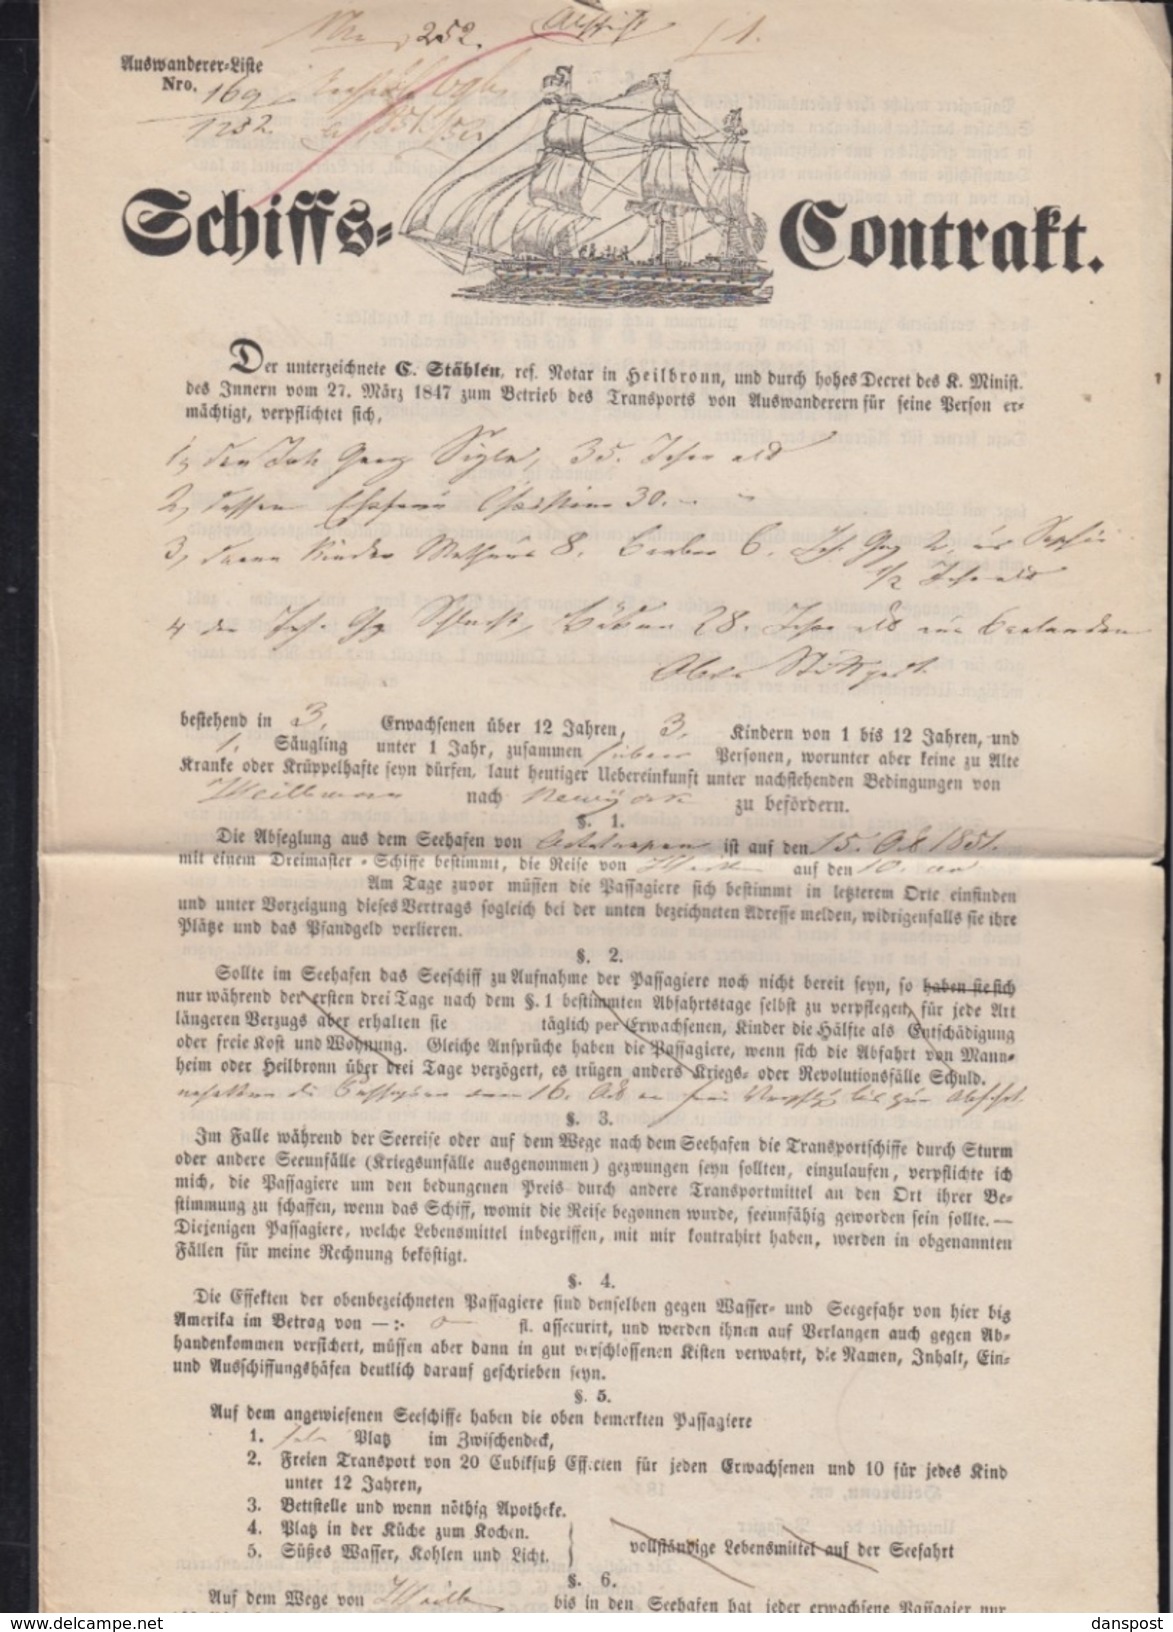 252.
1.
Auswanderer-Liste
Nro. 169
1232.
Schiffs- Contrakt.
Der unterzeichnete C. Stählen, ref. Notar in Heilbronn, und durch hohes Decret des K. Minist.
des Innern vom 27. März 1847 zum Betrieb des Transports von Auswanderern für seine Person er-
mächtigt, verpflichtet sich,
1, den Joh Georg 35. Jahre alt
2, dessen Ehefrau Christine 30. " "
3, deren Kinder 8. 6. Joh. Gg 2. u Sophie
1/2 Jahr alt
4 den Joh. Gg 28. Jahr alt
bestehend in 3. Erwachsenen über 12 Jahren, 3. Kindern von 1 bis 12 Jahren, und
1. Säugling unter 1 Jahr, zusammen sieben Personen, worunter aber keine zu Alte
Kranke oder Krüppelhafte seyn dürfen, laut heutiger Uebereinkunft unter nachstehenden Bedingungen von
Heilbronn nach Newyork zu befördern.
§. 1.
Die Abseglung aus dem Seehafen von Antwerpen ist auf den 15. Oct 1851.
mit einem Dreimaster-Schiffe bestimmt, die Reise von auf den 10.
Am Tage zuvor müssen die Passagiere sich bestimmt in letzterem Orte einfinden
und unter Vorzeigung dieses Vertrags sogleich bei der unten bezeichneten Adresse melden, widrigenfalls sie ihre
Plätze und das Pfandgeld verlieren.
§. 2.
Sollte im Seehafen das Seeschiff zu Aufnahme der Passagiere noch nicht bereit seyn, so haben sie sich
nur während der ersten drei Tage nach dem §. 1 bestimmten Abfahrtstage selbst zu verpflegen, für jede Art
längeren Verzugs aber erhalten sie täglich per Erwachsenen, Kinder die Hälfte als Entschädigung
oder freie Kost und Wohnung. Gleiche Ansprüche haben die Passagiere, wenn sich die Abfahrt von Mann-
heim oder Heilbronn über drei Tage verzögert, es trügen anders Kriegs- oder Revolutionsfälle Schuld.
erhalten die Passagiere vom 16. Oct an freie bis zur Abfahrt.
§. 3.
Im Falle während der Seereise oder auf dem Wege nach dem Seehafen die Transportschiffe durch Sturm
oder andere Seeunfälle (Kriegsunfälle ausgenommen) gezwungen seyn sollten, einzulaufen, verpflichte ich
mich, die Passagiere um den bedungenen Preis durch andere Transportmittel an den Ort ihrer Be-
stimmung zu schaffen, wenn das Schiff, womit die Reise begonnen wurde, seeunfähig geworden sein sollte. —
Diejenigen Passagiere, welche Lebensmittel inbegriffen, mit mir kontrahirt haben, werden in obgenannten
Fällen für meine Rechnung beköstigt.
§. 4.
Die Effekten der obenbezeichneten Passagiere sind denselben gegen Wasser- und Seegefahr von hier bis
Amerika im Betrag von —:· fl. assecurirt, und werden ihnen auf Verlangen auch gegen Ab-
handenkommen versichert, müssen aber dann in gut verschlossenen Kisten verwahrt, die Namen, Inhalt, Ein-
und Ausschiffungshäfen deutlich darauf geschrieben seyn.
§. 5.
Auf dem angewiesenen Seeschiffe haben die oben bemerkten Passagiere
1. Platz im Zwischendeck,
2. Freien Transport von 20 Cubikfuß Effecten für jeden Erwachsenen und 10 für jedes Kind
unter 12 Jahren,
3. Bettstelle und wenn nöthig Apotheke.
4. Platz in der Küche zum Kochen.
5. Süßes Wasser, Kohlen und Licht. vollständige Lebensmittel auf der Seefahrt
§. 6.
Auf dem Wege von Heilb bis in den Seehafen hat jeder erwachsene Passagier nur
www.delcampe.net danspost